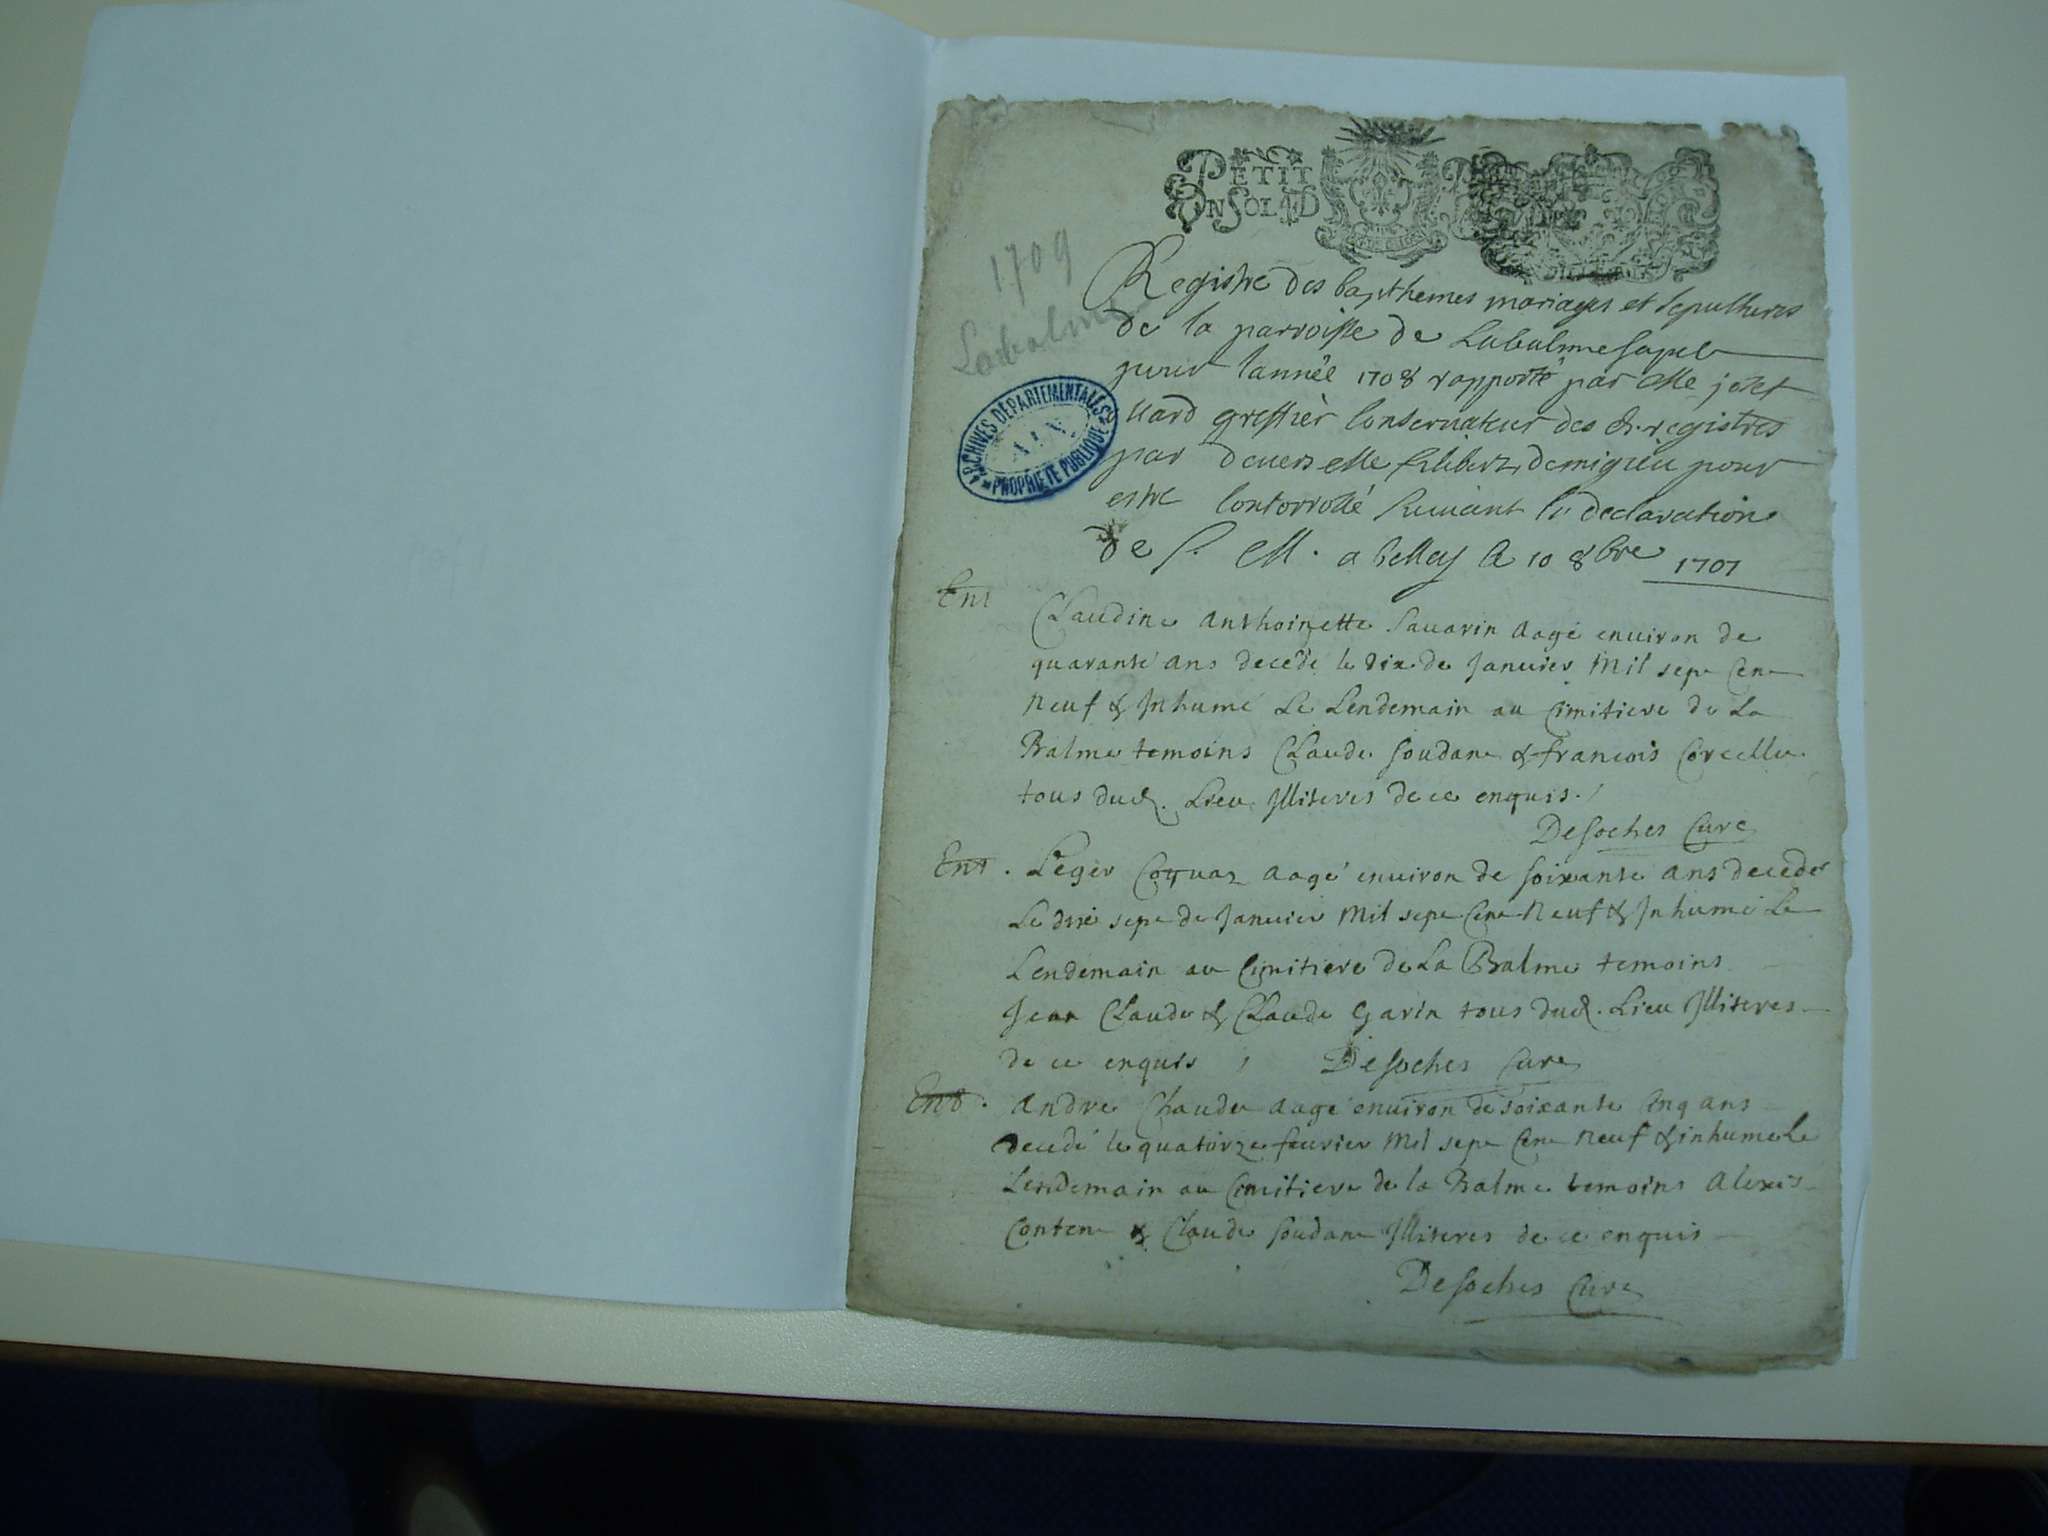 PETIT
UN SOL
1709
Labalme
ARCHIVES DÉPARTEMENTALES
AIN
PROPRIÉTÉ PUBLIQUE
Registre des bapthemes mariages et sepultures
de la parroisse de Labalme
pour lannée 1708 rapporté par Me
greffier Conservateur des registres
par devers Me pour
estre suivant la declaration
de S. M. a belley le 10 8bre 1707
Ent
Claudine Anthoinette Savarin aagé environ de
quarante ans decedé le dix de Janvier Mil sept Cent
Neuf & Inhumé Le Lendemain au Cimitiere de La
Balme temoins Claude Soudan & francois Corcelle
tous dud. Lieu Illiterés de ce enquis.
Desoches Curé
Ent. Leger Coquaz aagé environ de soixante ans decedé
Le dix sept de Janvier Mil sept Cent Neuf & Inhumé Le
Lendemain au Cimitiere de La Balme temoins
Jean Claude & Claude Gavin tous dud. Lieu Illiterés
de ce enquis Desoches Curé
Ent. Andre Chaude aagé environ de soixante Cinq ans
decedé le quatorze fevrier Mil sept Cent Neuf & inhumé Le
Lendemain au Cimitiere de la Balme temoins Alexis
Content & Claude Soudan Illiterés de ce enquis
Desoches Curé